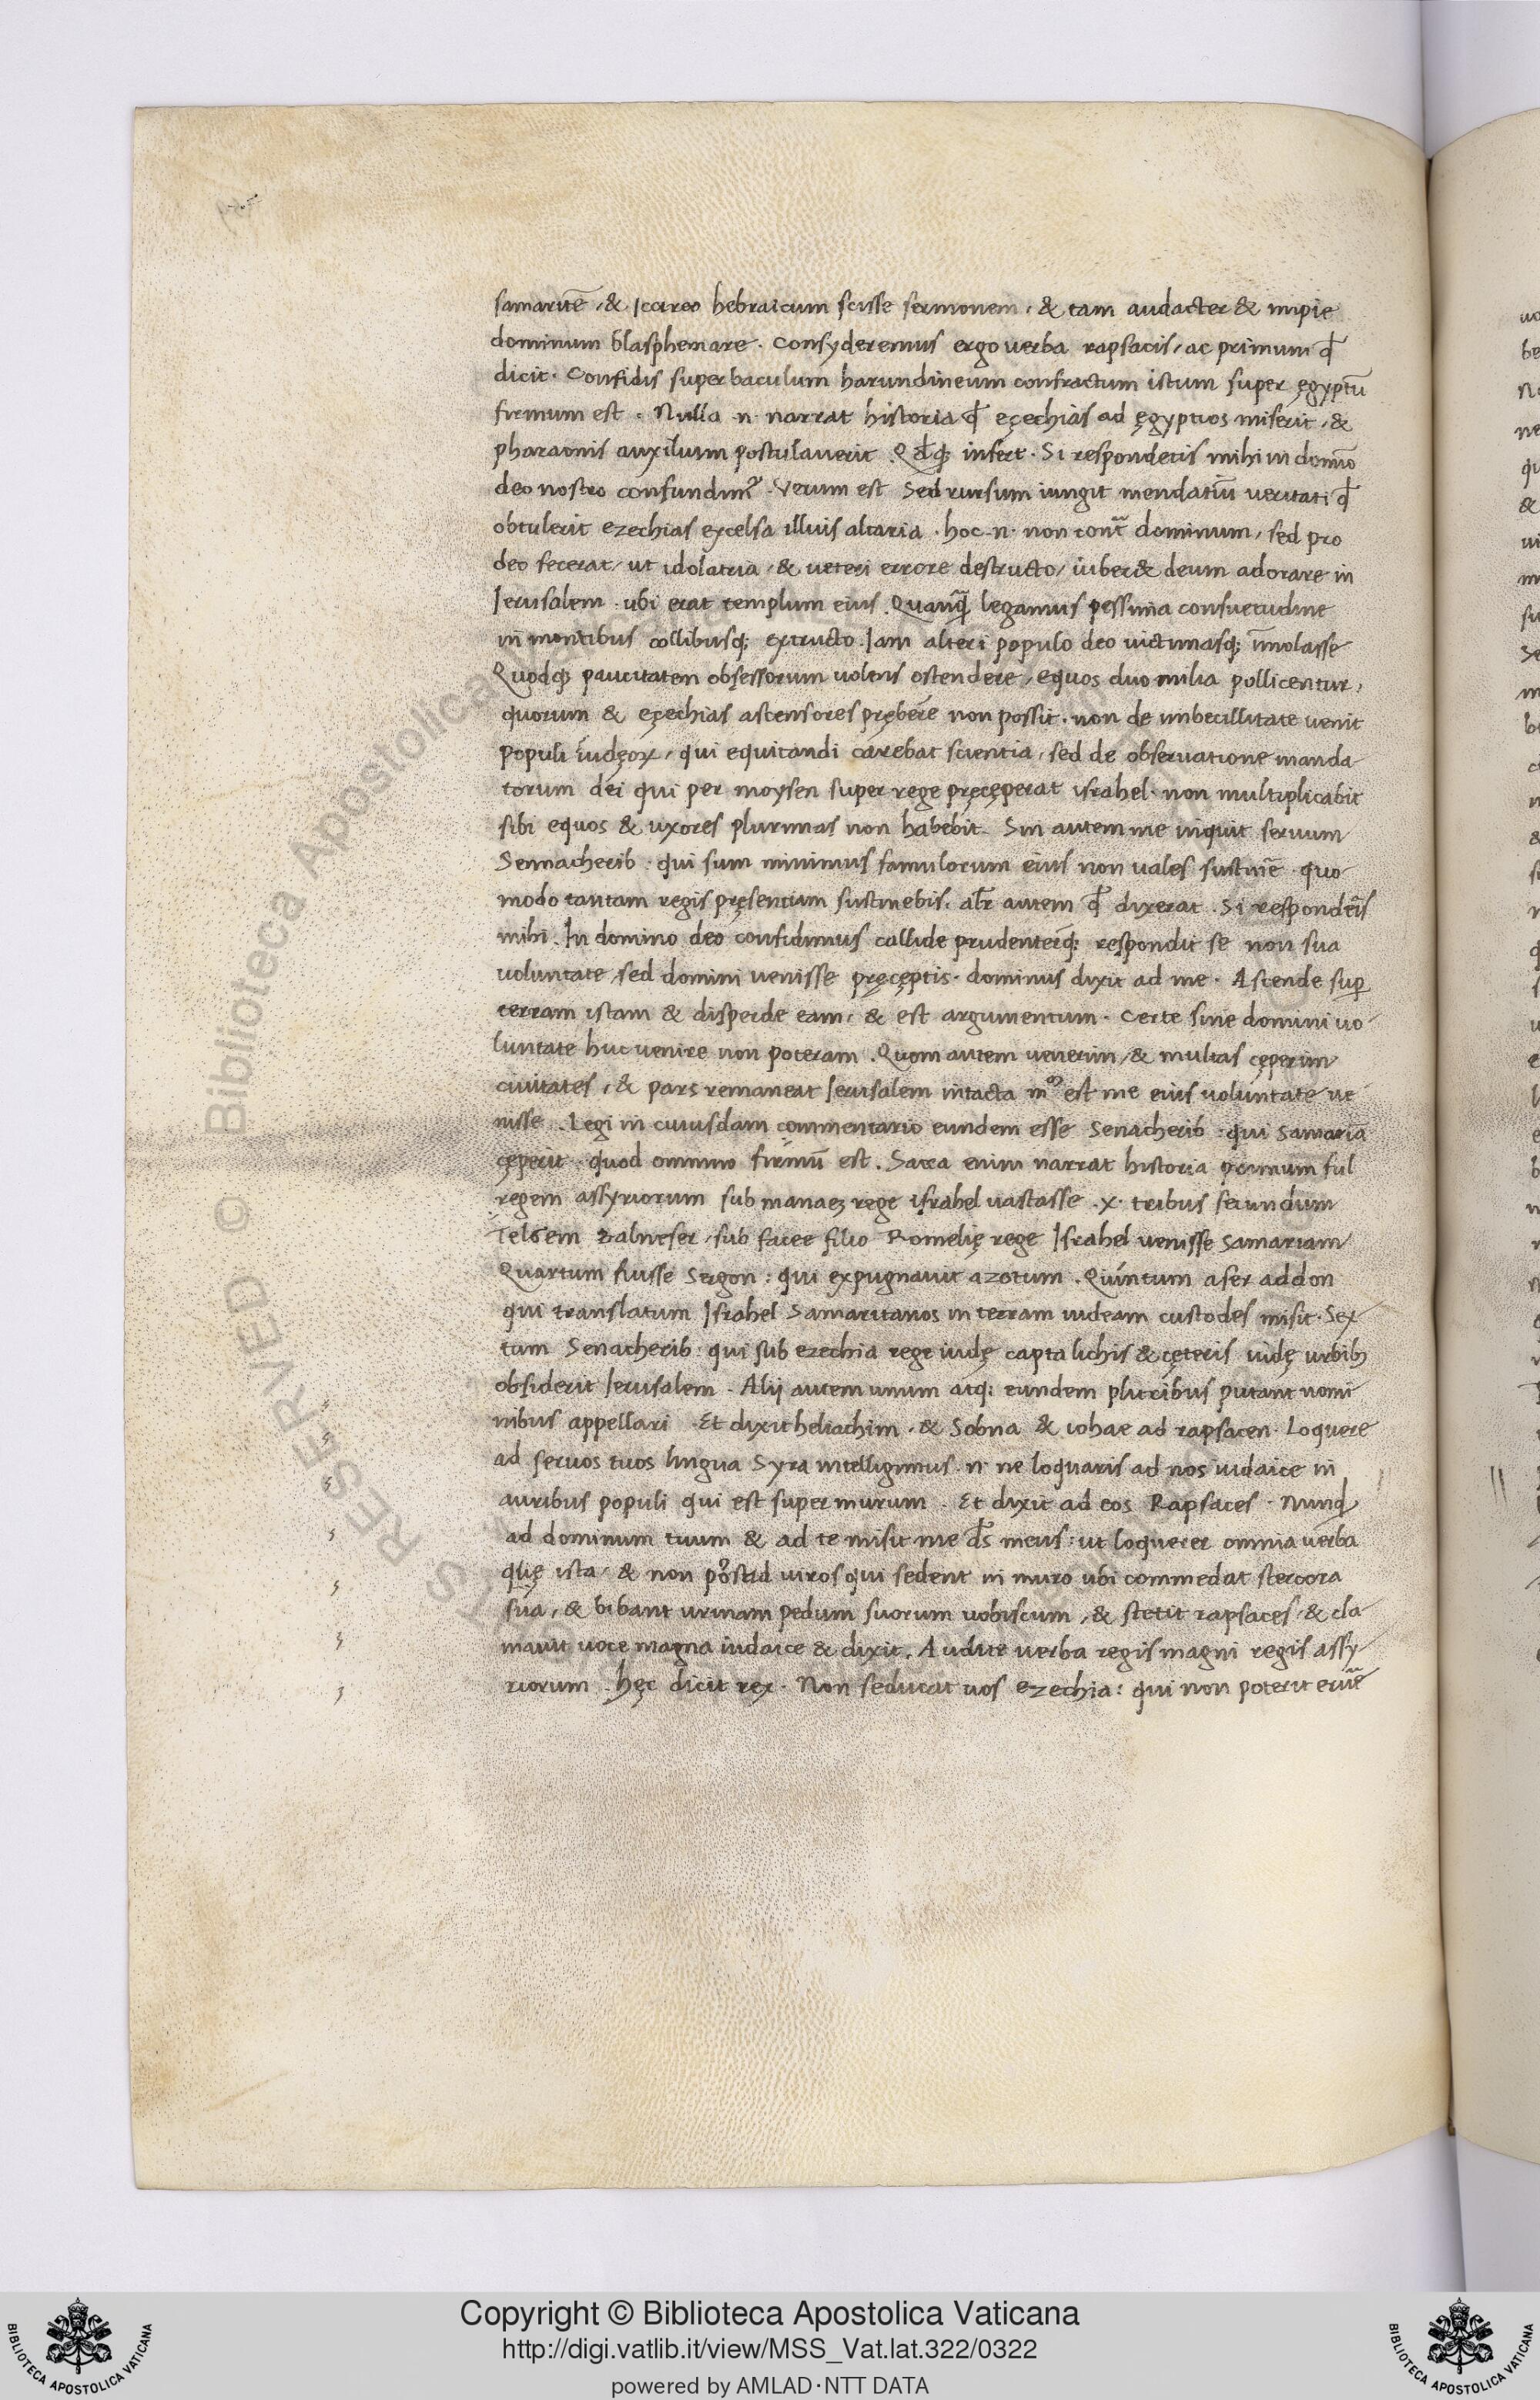 samaritē, & Icirco hebraicum scisse sermonem, & tam audacter & impie
dominum blasphemare. Consyderemus ergo verba rapsacis, ac primum qđ
dicit. Confidis super baculum harundineum confractum istum super ęgyptū
firmum est. Nulla .n. narrat historia qđ eçechias ad ęgyptios miserit, &
pharaonis auxilium postulaverit. Qđq; infert. Si respondetis mihi in domīo
deo nostro confundim᷒. Verum est Sed rursum iungit mendatiū veritati qđ
obtulerit ezechias excelsa illius altaria. hoc .n. non cont̄ dominum, sed pro
deo fecerat, ut idolatria, & veteri errore destructo, iuber& deum adorare in
Ierusalem. ubi erat templum eius. Quanq̄ legamus pessima consuetudine
in montibus collibusq; extructo. Iam alteri populo deo victimasq; īmolasse
Quodq; paucitatem obsessorum volens ostendere, equos duo milia pollicentur,
quorum & eçechias ascensores pręberē non possit. non de imbecillitate venit
populi iudęoꝝ, qui equitandi carebat scientia, sed de observatione manda
torum dei qui per moysen super rege pręcęperat israhel. non multiplicabit
sibi equos & uxores plurimas non habebit. Sin autem me inquit servum
Sennacherib. qui sum minimus famulorum eius non vales sustinē. quo
modo tantam regis pręsentium sustinebis. alr̄ autem qđ dixerat. Si respondeīs
mihi. In domino deo confidimus callide prudenterq; respondit se non sua
voluntate, sed domini venisse pręcęptis. dominus dixit ad me. Ascende suꝑ
terram istam & disperde eam, & est argumentum. Certe sine domini vo
luntate huc venire non poteram. Quom autem venerim, & multas cęperim
civitates, & pars remaneat Ierusalem intacta est me eius voluntate ve
nisse. Legi in cuiusdam commentario eundem esse Senacherib. qui Samaria
cęperit. quod omnino firmū est. Sacra enim narrat historia primum ful
regem assyriorum sub manaez rege israhel vastasse .x. tribus secundum
Telsem Balneser, sub facee filio Romelię rege Israhel venisse Samariam
Quartum fuisse Sergon: qui expugnavit azotum. Quintum aser addon
qui translatum Israhel Samaritanos in terram iudeam custodes misit. Sex
tum Senacherib: qui sub ezechia rege iudę capta lichis & cęteris iudę urbib;
obsiderit Ierusalem. Alij autem unum atq; eundem pluribus putant nomi
nibus appellari. Et dixit heliachim, & Sobna & iohae ad rapsacen. Loquere
ad servos tuos lingua Syra intelligimus .n. ne loquaris ad nos iudaice in
auribus populi qui est super murum. Et dixit ad eos Rapsaces. Nunqđ
ad dominum tuum & ad te misit me dn̄s meus: ut loquerer omnia verba
ista, & non ad viros qui sedent in muro ubi commedat stercora
sua, & bibant urinam pedum suorum vobiscum, & stetit rapsaces, & cla
mavit voce magna iudaice & dixit. Audite verba regis magni regis assy
riorum. hęc dicit rex. Non seducat vos ezechia: qui non poterit eruē